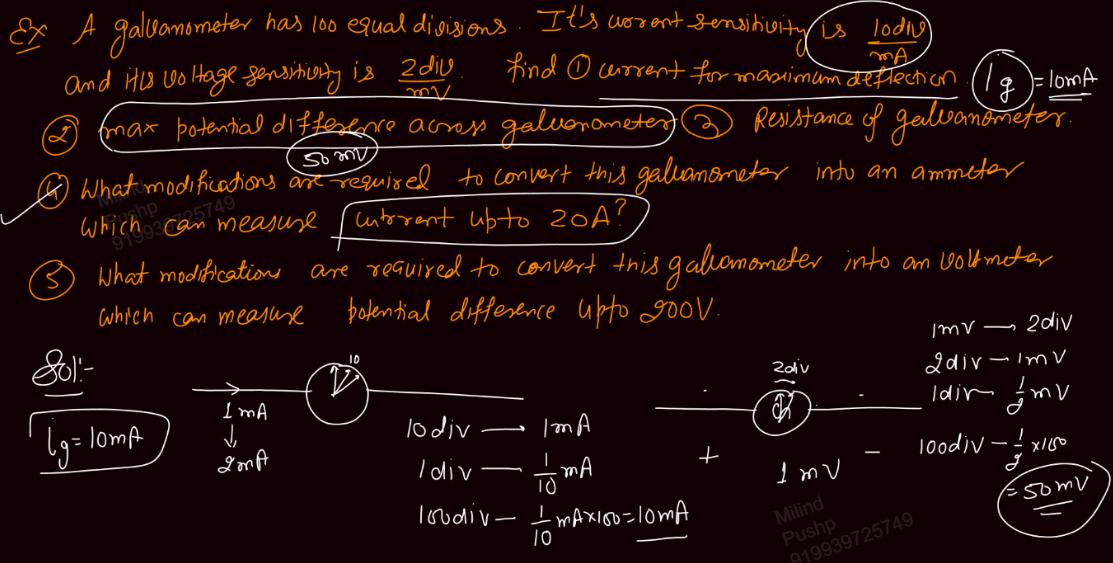 Ex A galvanometer has 100 equal divisions. It's current sensitivity is 10div/mA
and its voltage sensitivity is 2div/mV. find ① current for maximum deflection. Ig = 10mA
② max potential difference across galvanometer ③ Resistance of galvanometer.
50 mV
④ What modifications are required to convert this galvanometer into an ammeter
which can measure current upto 20A?
⑤ What modifications are required to convert this galvanometer into an voltmeter
which can measure potential difference upto 200V.
Sol:-
Ig = 10mA
1 mA
↓
2mA
10
10div → 1mA
1div — 1/10 mA
100div — 1/10 mA×100 = 10mA
2div
+ 1 mV −
1mV → 2div
2div — 1mV
1div — 1/2 mV
100div — 1/2 ×100
= 50mV
Milind
Pushp
919939725749
Milind
Pushp
919939725749